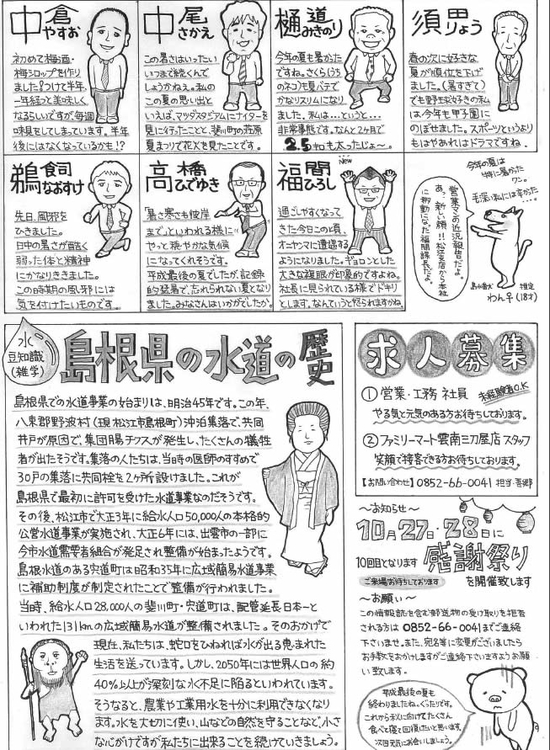 中倉
やすお
初めて梅酒・
梅シロップを作り
ました?つけて半年、
一年経つと美味しく
なるらしいですが毎週
味見をしてしまっています。半年
後にはなくなっているかも!?
中尾
さかえ
この暑さはいったい
いつまで続くんで
しょうかねえ。私の
この夏の思い出と
いえば、マツダスタジアムにナイターを
見に行ったことと、斐川町の荘原
夏まつりで花火を見たことです。
樋道
みきのり
今年の夏も暑かった
ですね。さくら(うち
のネコ)も夏バテで
かなりスリムになり
ました。私は…というと…
非常事態です。なんと2ヶ月で
2.5キロも太ったじょ~
須田
りょう
春の次に好きな
夏が順位を下げ
ました。(暑すぎて)
でも野球好きの私
は今年も甲子園に
のぼせました。スポーツというより
もはやあれはドラマですね。
鵜飼
なおすけ
先日、風邪を
ひきました。
日中の暑さが首都く
弱った体と精神
にかなりききました。
この時期の風邪には
気を付けたいものです。
高橋
ひでゆき
「暑さ寒さも彼岸
まで」といわれる様に
やっと穏やかな気候
になってくれそうです。
平成最後の夏でしたが、記録
的猛暑で、忘れられない夏となり
ました。みなさんはいかがでしたか。
福間
ひろし
NEW
過ごしやすくなって
きた今日この頃、
オニヤンマに遭遇する
ようになりました。ギョロッとした
大きな複眼が印象的ですよね。
社長に見られている様でドキリ
とします。なんていうと怒られますかね。
今年の夏は
特に暑かった
ワン。
毛深い私にはすずかた…
営業さんの近況報告だよ。
あっ、新しい顔!!松江支店から本社
に移動になった福間課長だよ。
島水番犬
推定
わん子(18才)
水
豆知識
(雑学)
島根県の水道の歴史
島根県での水道事業の始まりは、明治45年です。この年、
八束郡野波村(現松江市島根町)沖泊集落で、共同
井戸が原因で、集団腸チフスが発生し、たくさんの犠牲
者が出たそうです。集落の人たちは、当時の医師のすすめで
30戸の集落に共同栓を2ヶ所設けました。これが
島根県で最初に許可を受けた水道事業なのだそうです。
その後、松江市で大正3年に給水人口50,000人の本格的
公営水道事業が実施され、大正6年には、出雲市の一部に
今市水道需要者組合が発足され整備が始まったようです。
島根水道のある宍道町は昭和35年に広域簡易水道事業
に補助制度が制定されたことで整備が行われました。
当時、給水人口28,000人の斐川町・宍道町は、配管延長日本一と
いわれた131kmの広域簡易水道が整備されました。そのおかげで
現在、私たちは、蛇口をひねれば水が出る恵まれた
生活を送っています。しかし、2050年には世界人口の約
40%以上が深刻な水不足に陥るといわれています。
そうなると、農業や工業用水を十分に利用できなくなり
ます。水を大切に使い、山などの自然を守ることなど、小さ
な心がけですが私たちに出来ることを続けていきましょう。
求人募集
①営業・工務 社員 未経験者O.K
やる気と元気のある方お待ちしております。
②ファミリーマート雲南三刀屋店スタッフ
笑顔で接客できる方お待ちしております。
【お問い合わせ】0852-66-0041 担当:吾郷
~お知らせ~
10月27日・28日に
10回目となります
感謝祭り
ご来場お待ちしております
を開催致します
~お願い~
この情報誌を含む郵送物の受け取りを拒否
される方は0852-66-0041までご連絡
下さいませ。また、宛名等に変更がございましたら
お手数をおかけしますがご連絡下さいますようお願
い致します。
平成最後の夏も
終わりましたね。ぐったりです。
これから秋に向けてたくさん
食べて寝て回復したいと思います。
次回もまたお会いしましょう。